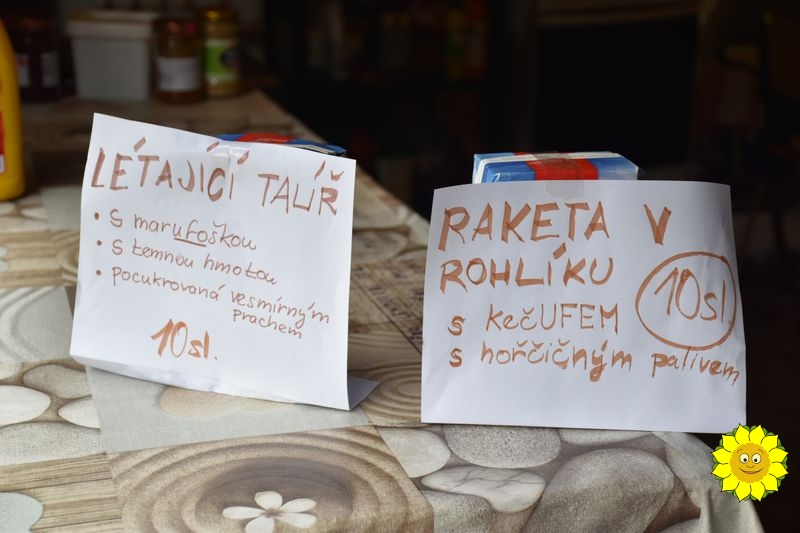 LÉTAJÍCÍ TALÍŘ
• S marufoškou
• S temnou hmotou
• pocukrovaná vesmírným
prachem
10sl.
RAKETA V
ROHLÍKU
S KečUFEM
S hořčičným palivem
10sl.